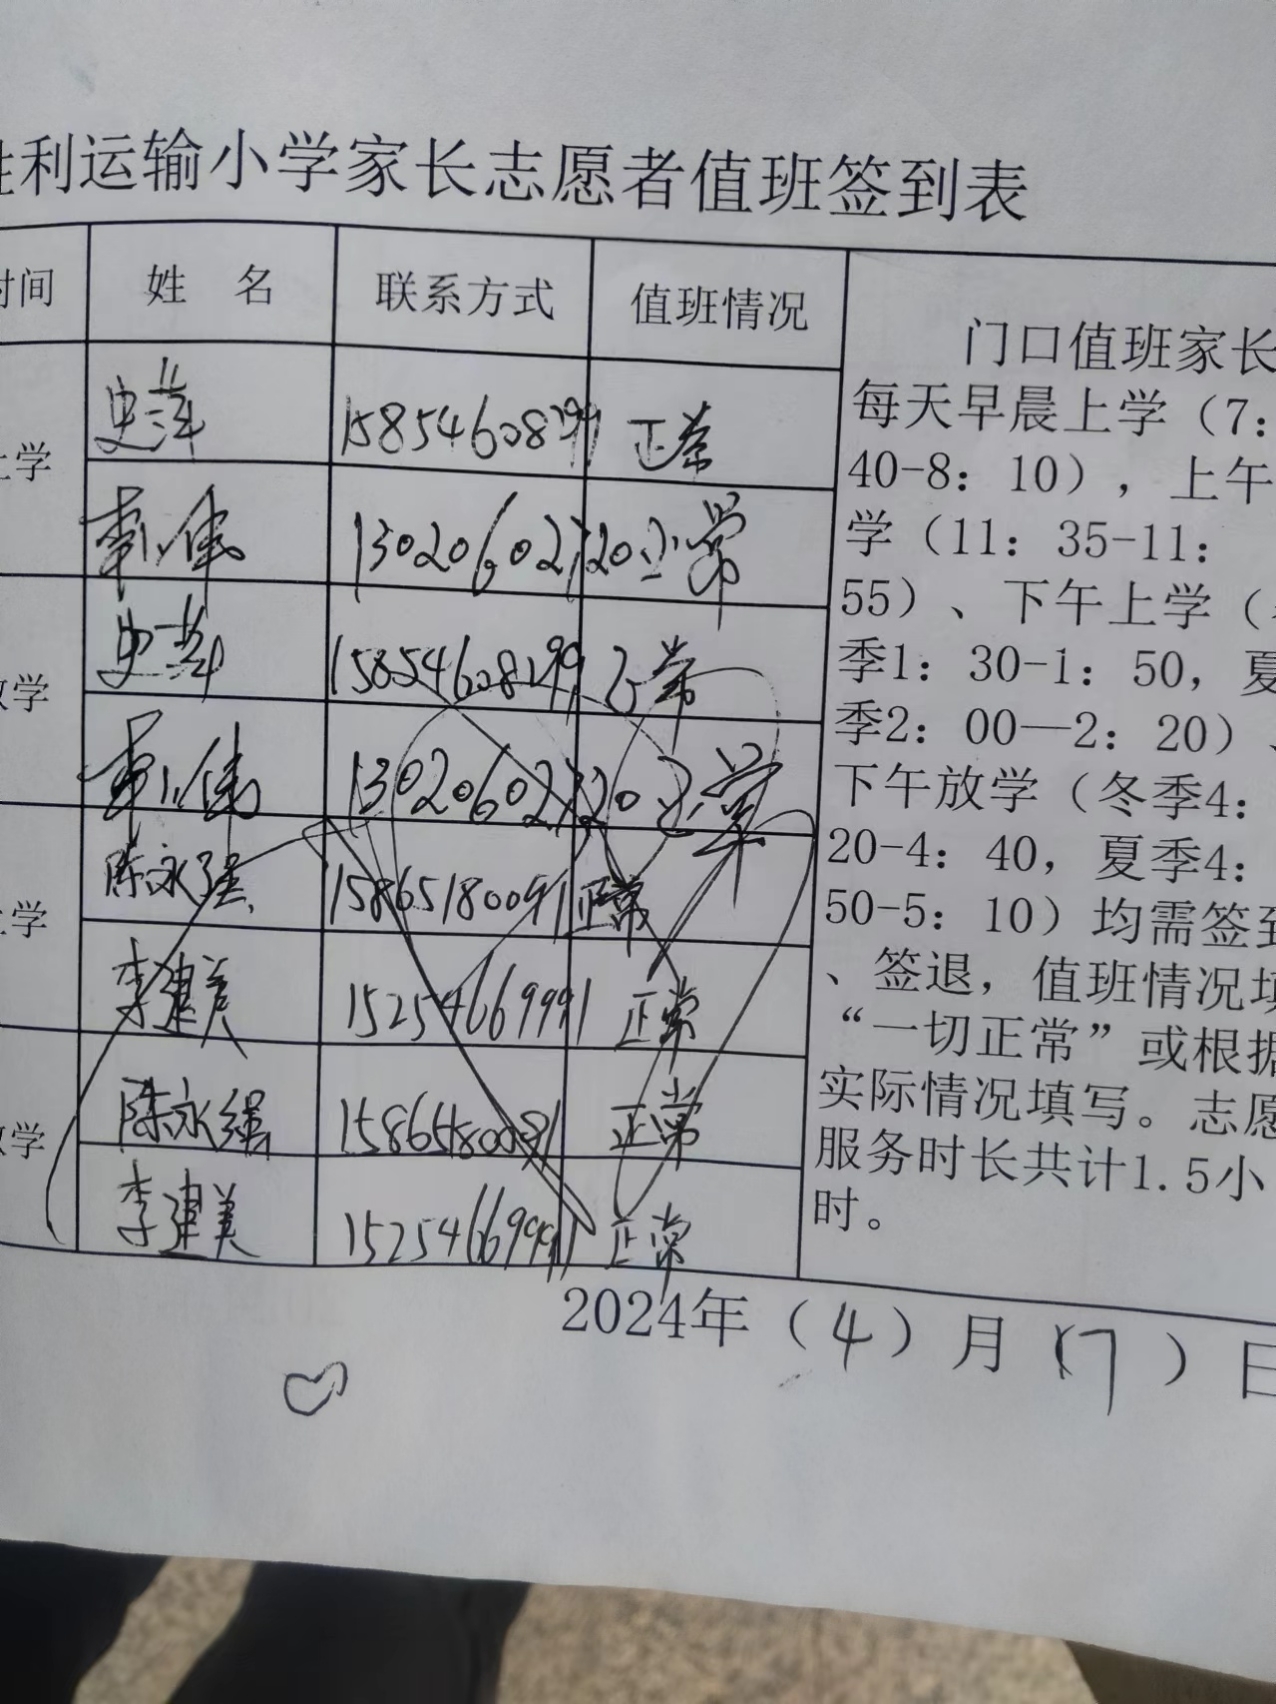 胜利运输小学家长志愿者值班签到表
时间 姓 名 联系方式 值班情况
上学 史萍 15854608299 正常
13020602720 正常
放学 史萍 15854608299 正常
13020602720 正常
上学 陈永强 15865180091 正常
李建美 15254669991 正常
放学 陈永强 15865180091 正常
李建美 15254669991 正常
门口值班家长
每天早晨上学（7：
40-8：10），上午
学（11：35-11：
55）、下午上学（
季1：30-1：50，夏
季2：00—2：20）、
下午放学（冬季4：
20-4：40，夏季4：
50-5：10）均需签到
、签退，值班情况填
“一切正常”或根据
实际情况填写。志愿
服务时长共计1.5小
时。
2024年（4）月（17）日